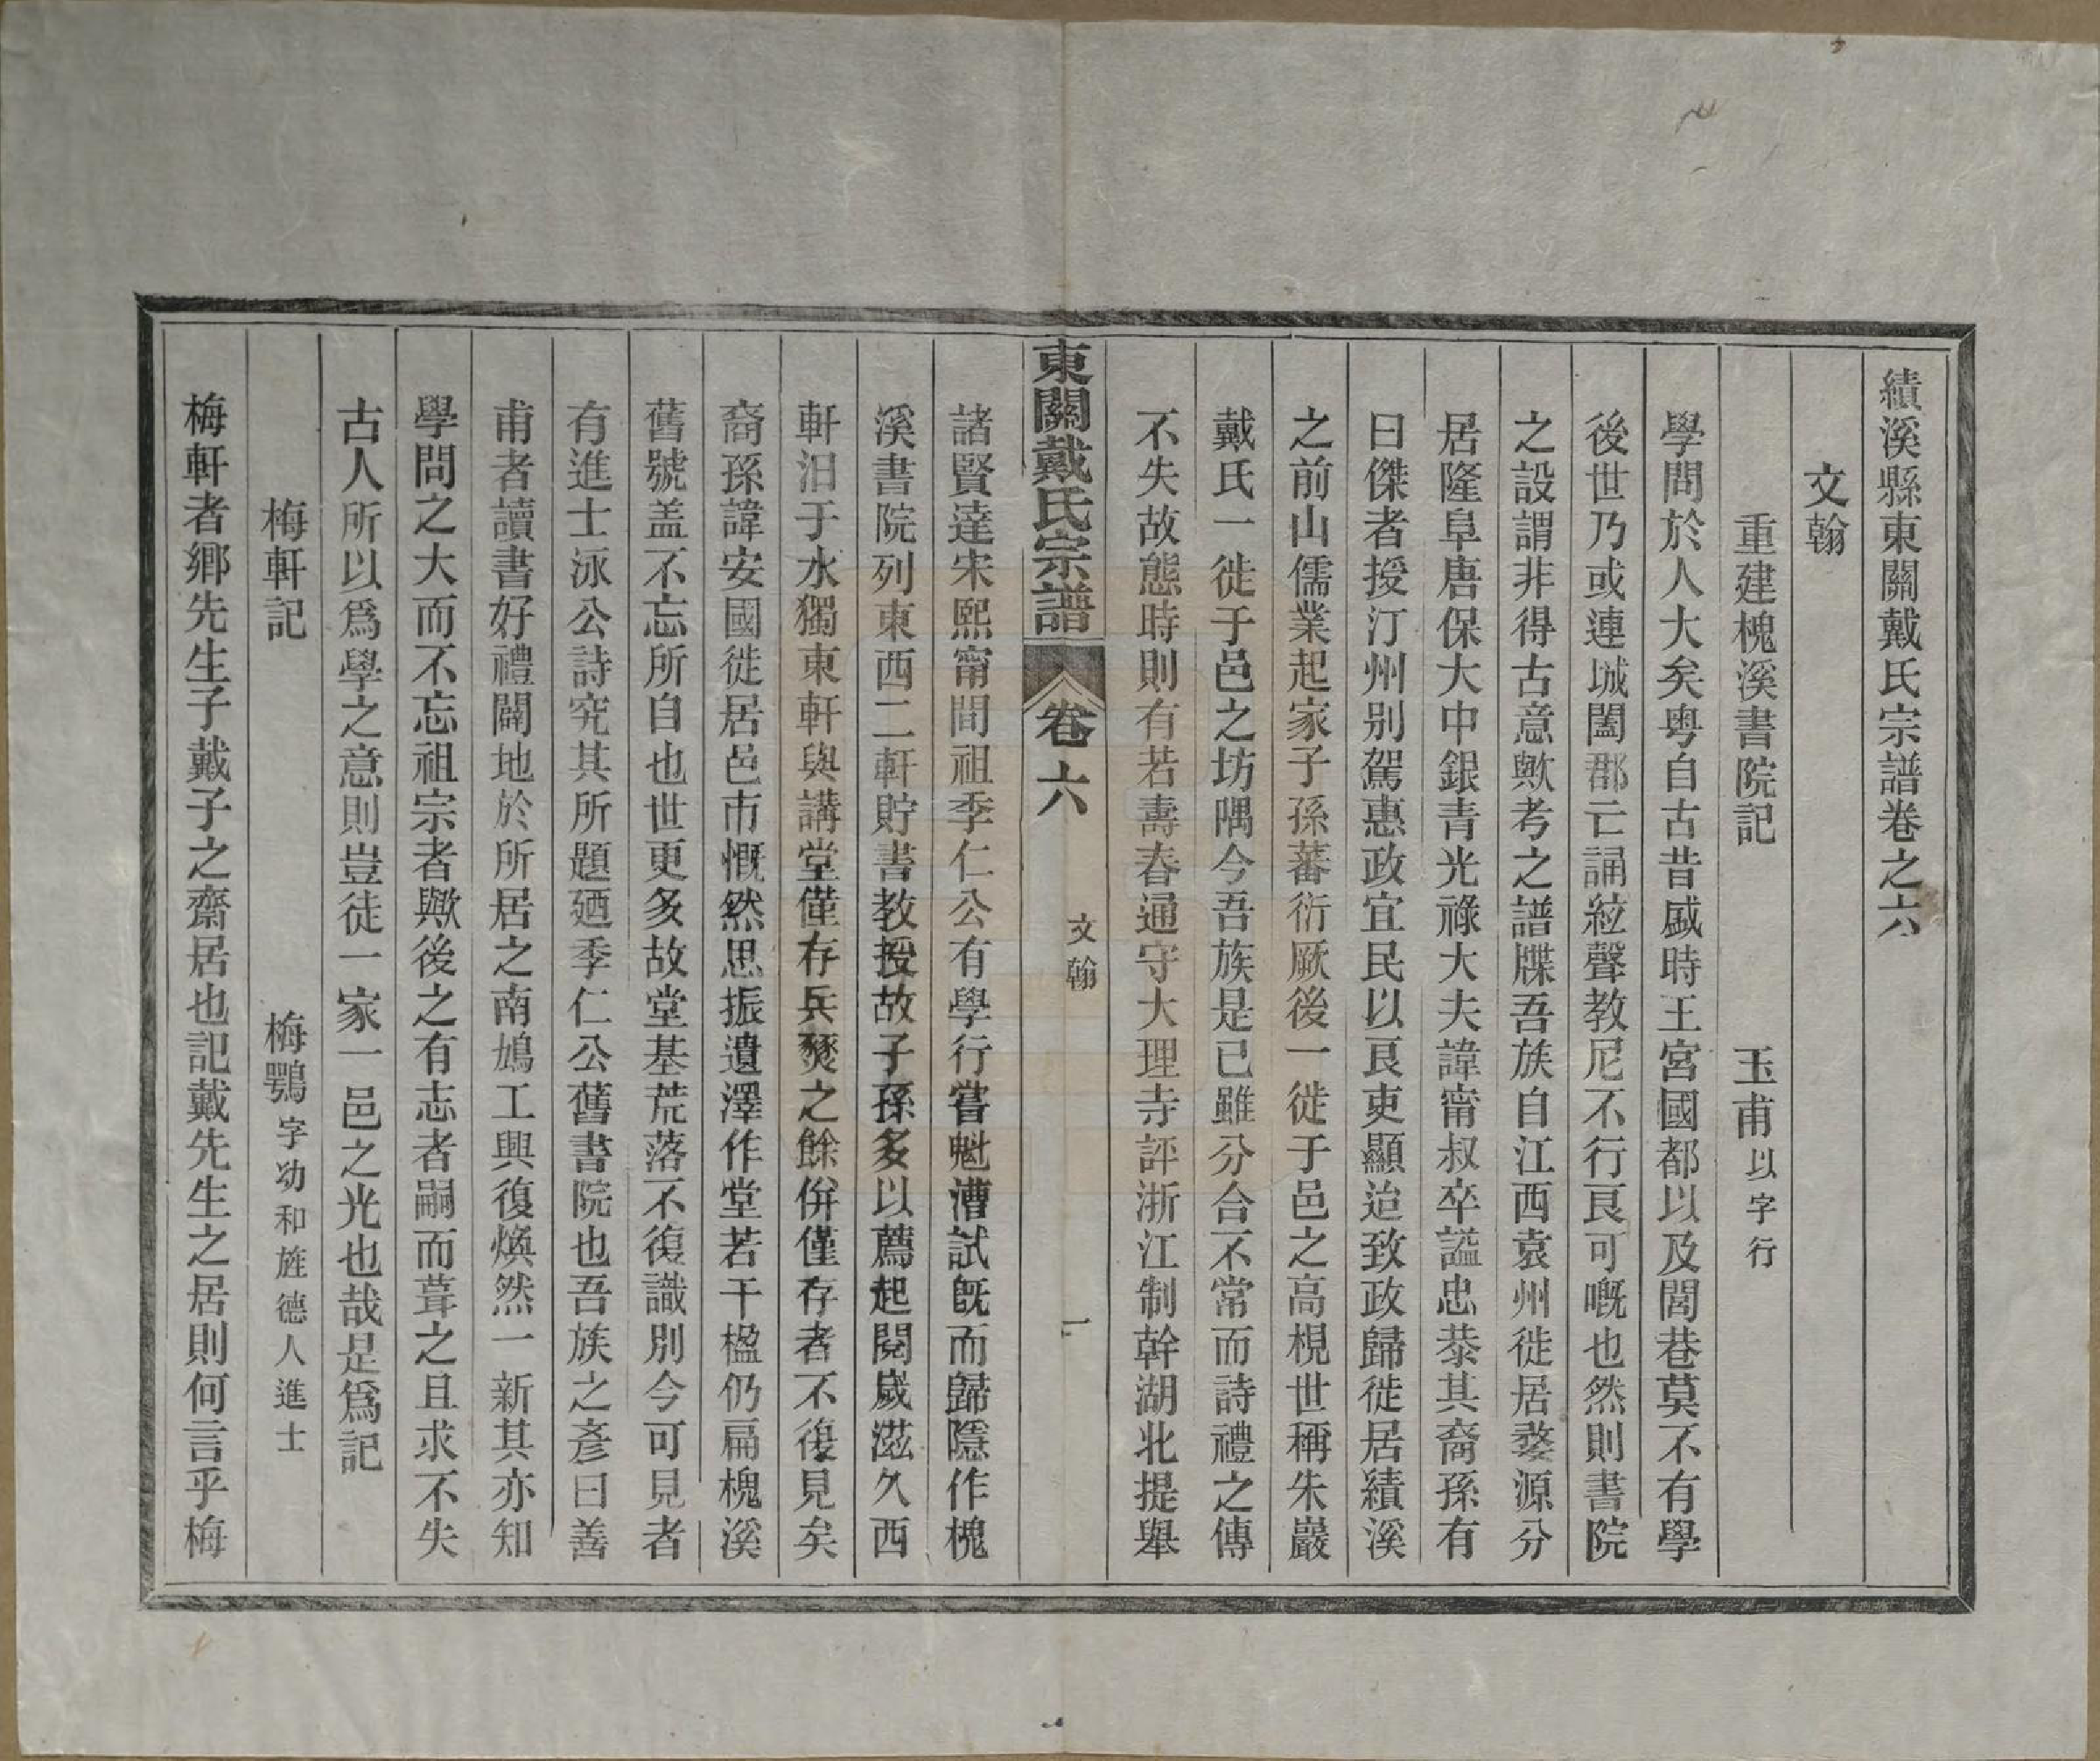 績溪縣東關戴氏宗譜卷之六
文翰
重建槐溪書院記　玉甫以字行
學問於人大矣粤自古昔盛時王宮國都以及閭巷莫不有學
後世乃或連城闔郡亡誦絃聲教尼不行良可嘅也然則書院
之設謂非得古意歟考之譜牒吾族自江西袁州徙居婺源分
居隆阜唐保大中銀青光祿大夫諱甯叔卒謚忠恭其裔孫有
曰傑者授汀州别駕惠政宜民以良吏顯迨致政歸徙居績溪
之前山儒業起家子孫蕃衍厥後一徙于邑之高枧世稱朱巖
戴氏一徙于邑之坊隅今吾族是已雖分合不常而詩禮之傳
不失故態時則有若壽春通守大理寺評浙江制幹湖北提舉
東關戴氏宗譜　卷六　文翰　一
諸賢達宋熙甯間祖季仁公有學行嘗魁漕試旣而歸隱作槐
溪書院列東西二軒貯書教授故子孫多以薦起閱歲滋久西
軒汨于水獨東軒與講堂僅存兵燹之餘併僅存者不復見矣
裔孫諱安國徙居邑市慨然思振遺澤作堂若干楹仍扁槐溪
舊號盖不忘所自也世更多故堂基荒落不復識別今可見者
有進士泳公詩究其所題廼季仁公舊書院也吾族之彥曰善
甫者讀書好禮闢地於所居之南鳩工興復煥然一新其亦知
學問之大而不忘祖宗者歟後之有志者嗣而葺之且求不失
古人所以爲學之意則豈徒一家一邑之光也哉是爲記
梅軒記　梅鶚字幼和旌德人進士
梅軒者鄉先生子戴子之齋居也記戴先生之居則何言乎梅